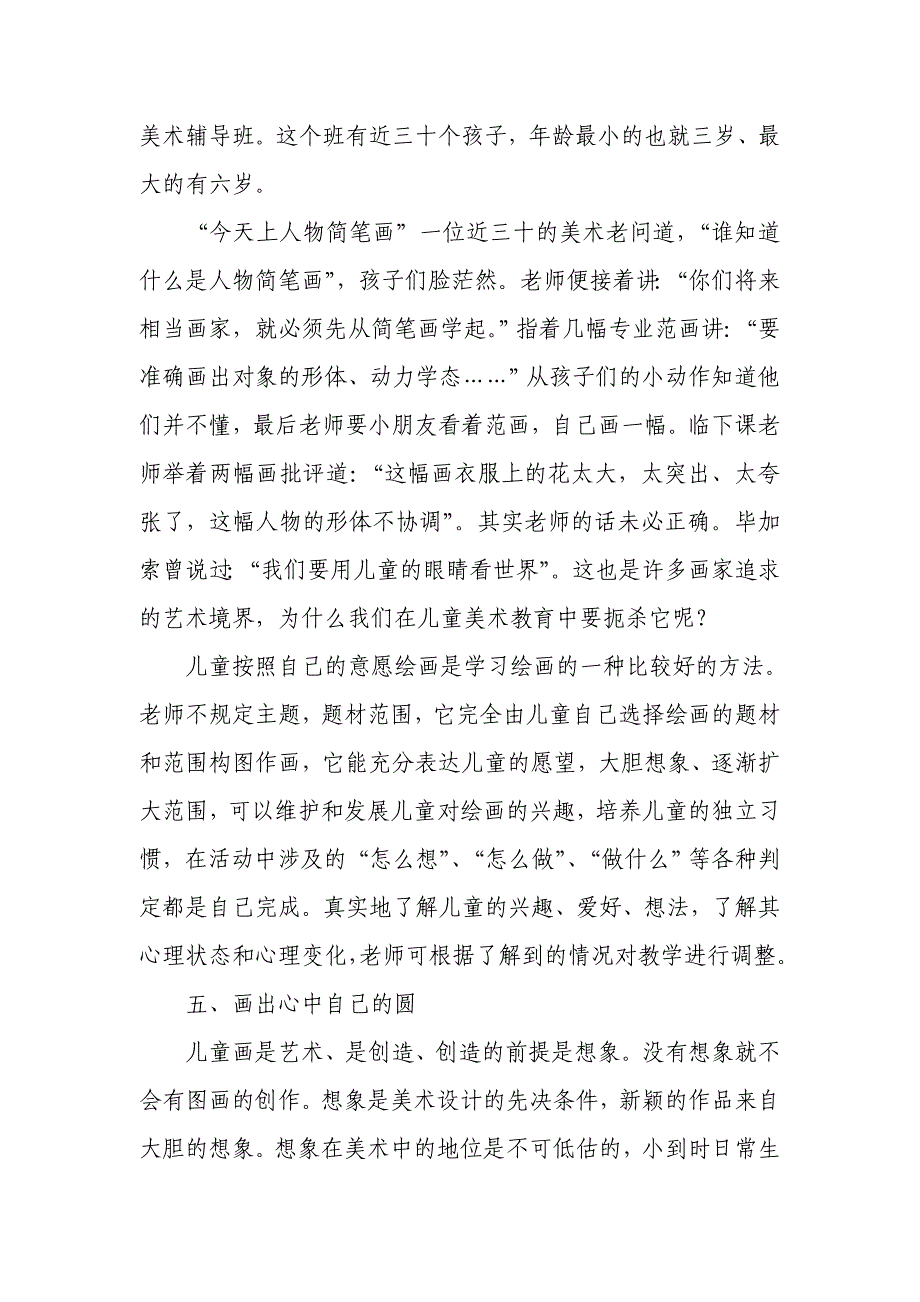 美术辅导班。这个班有近三十个孩子，年龄最小的也就三岁、最
大的有六岁。
“今天上人物简笔画”一位近三十的美术老问道，“谁知道
什么是人物简笔画”，孩子们脸茫然。老师便接着讲：“你们将来
相当画家，就必须先从简笔画学起。”指着几幅专业范画讲：“要
准确画出对象的形体、动力学态……”从孩子们的小动作知道他
们并不懂，最后老师要小朋友看着范画，自己画一幅。临下课老
师举着两幅画批评道：“这幅画衣服上的花太大，太突出、太夸
张了，这幅人物的形体不协调”。其实老师的话未必正确。毕加
索曾说过：“我们要用儿童的眼睛看世界”。这也是许多画家追求
的艺术境界，为什么我们在儿童美术教育中要扼杀它呢？
儿童按照自己的意愿绘画是学习绘画的一种比较好的方法。
老师不规定主题，题材范围，它完全由儿童自己选择绘画的题材
和范围构图作画，它能充分表达儿童的愿望，大胆想象、逐渐扩
大范围，可以维护和发展儿童对绘画的兴趣，培养儿童的独立习
惯，在活动中涉及的“怎么想”、“怎么做”、“做什么”等各种判
定都是自己完成。真实地了解儿童的兴趣、爱好、想法，了解其
心理状态和心理变化，老师可根据了解到的情况对教学进行调整。
五、画出心中自己的圆
儿童画是艺术、是创造、创造的前提是想象。没有想象就不
会有图画的创作。想象是美术设计的先决条件，新颖的作品来自
大胆的想象。想象在美术中的地位是不可低估的，小到时日常生